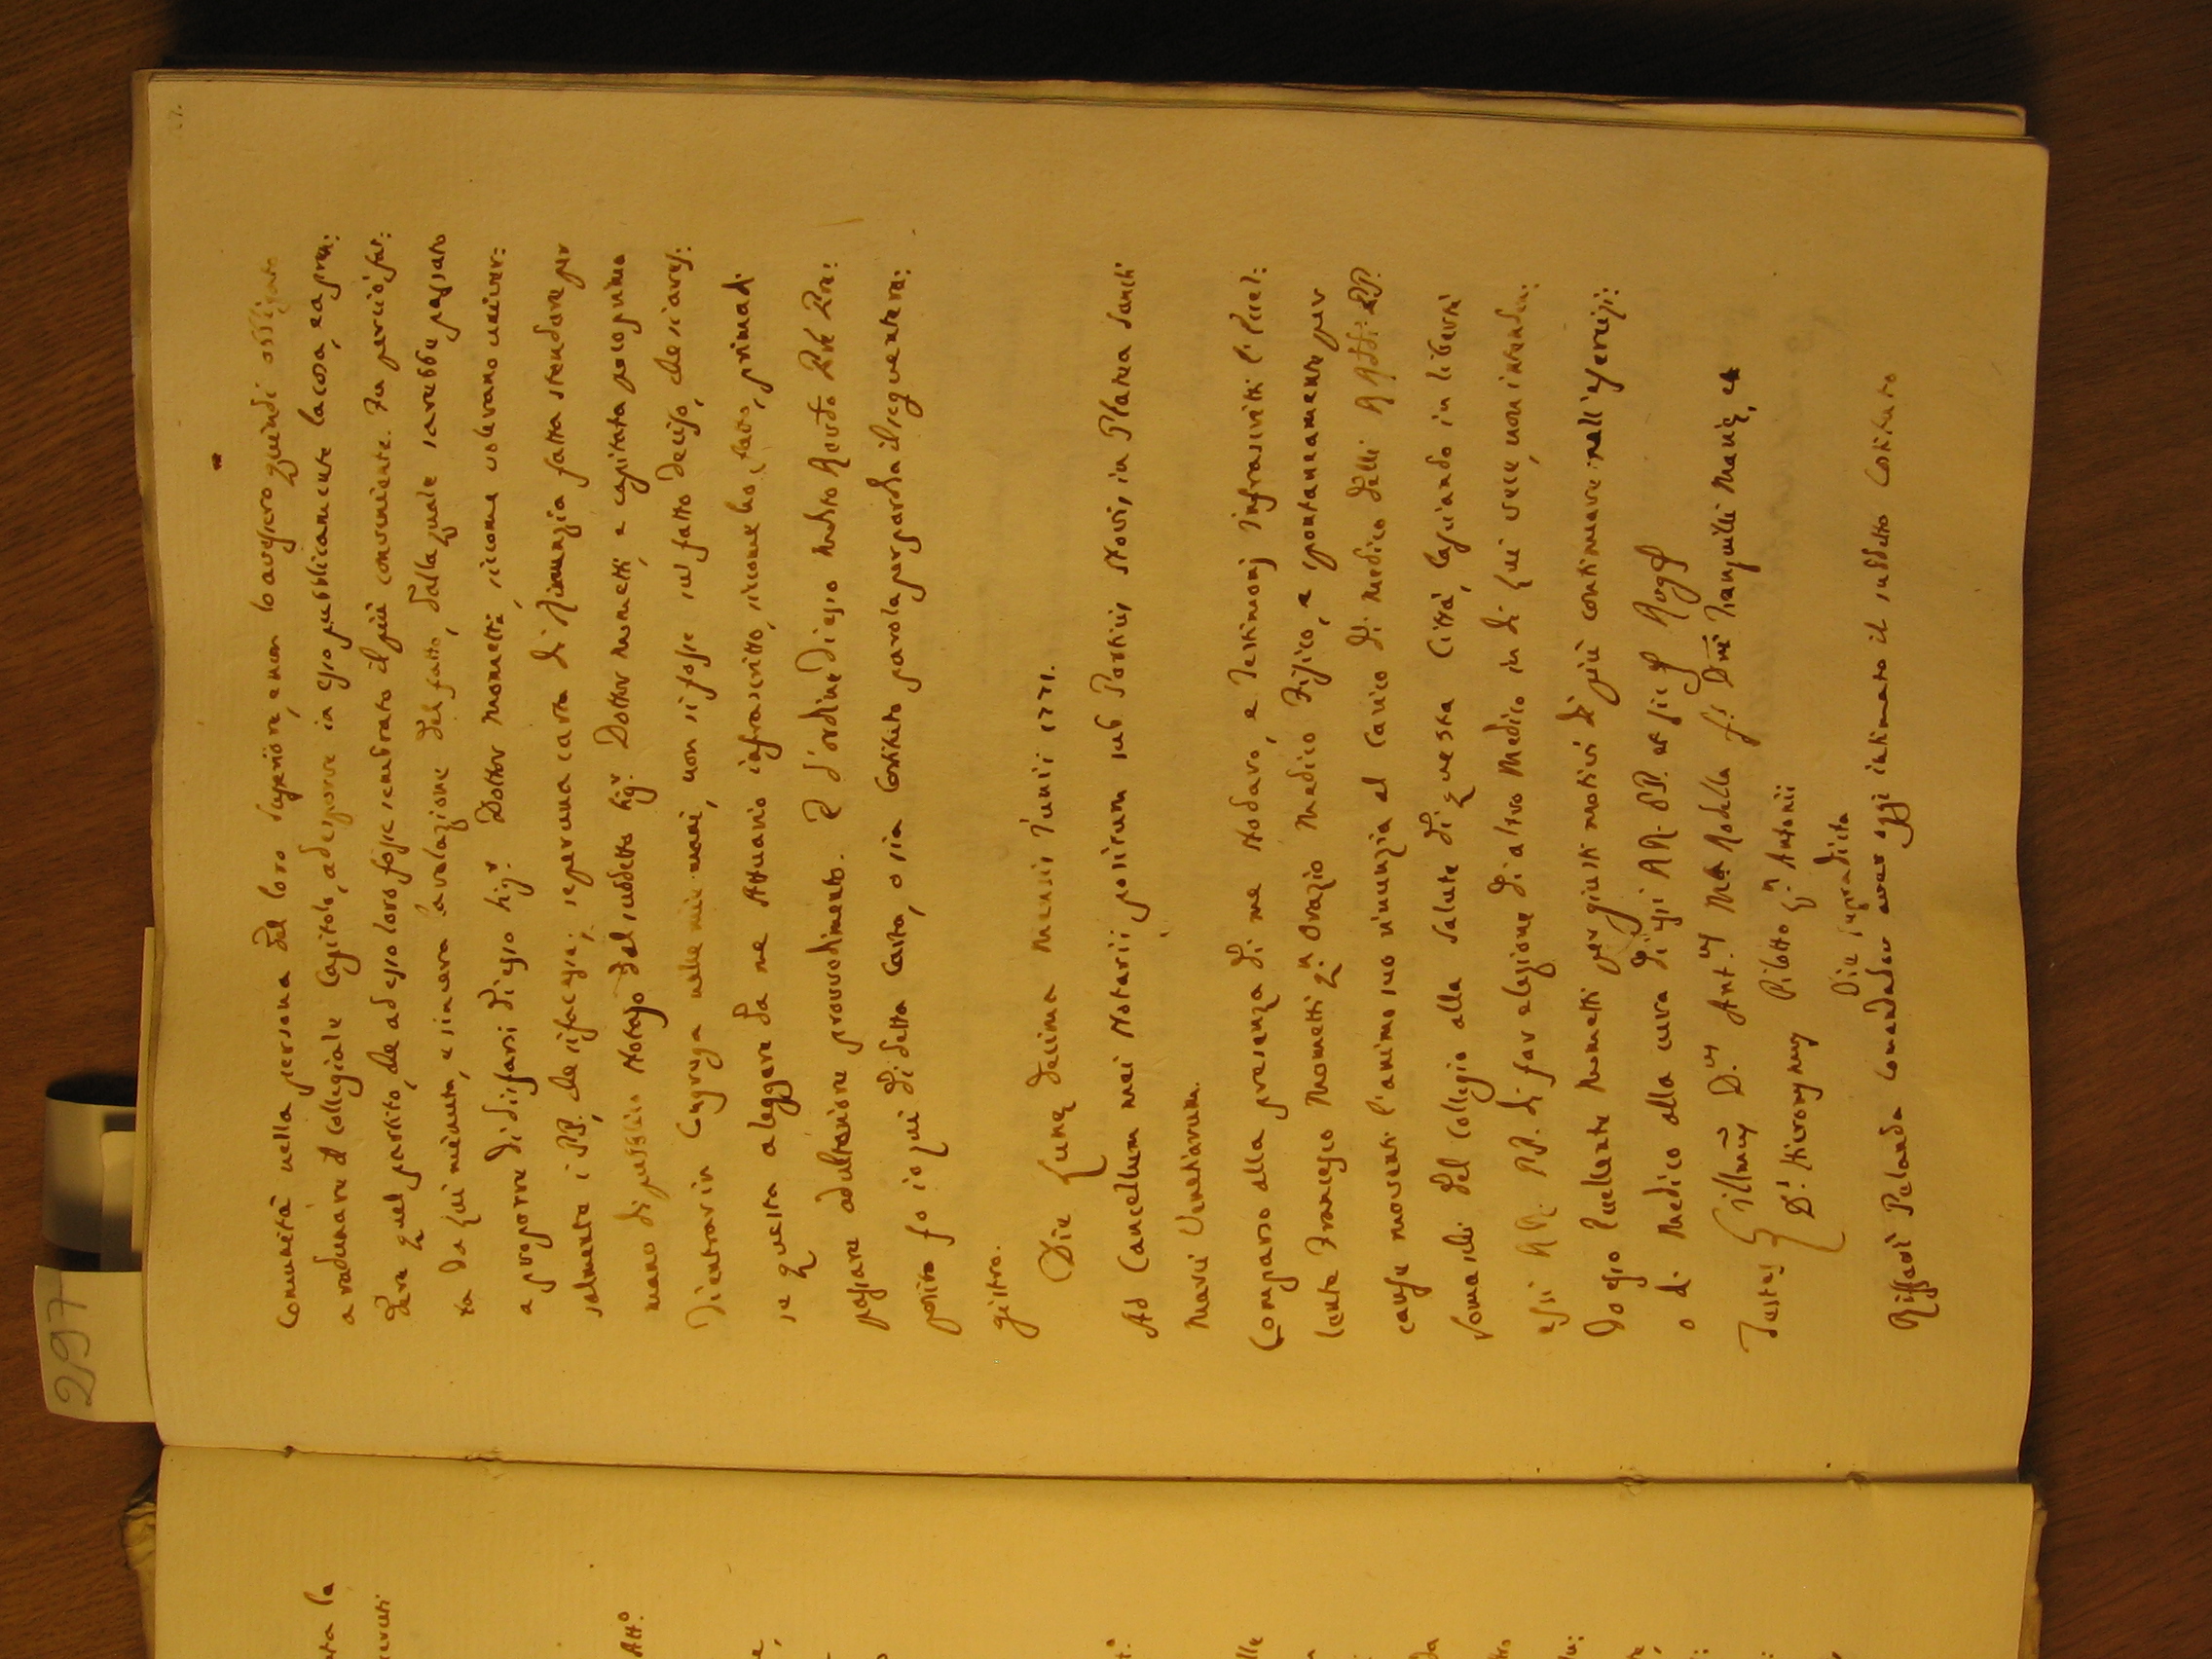 Communità nella persona del loro Superiore, e non lo avessero quindi obbligato
a radunare il Collegiale Capitolo, ad esporre in esso pubblicamente la cosa, ea pren:
dere quel partito, che ad esso loro fosse sembrato il più conveniente. Fu perciò fat:
ta da qui niente, e sincera la relazione del fatto, dalla quale sarebbe passato
a proporre di disfarsi di esso Sig.r Dottor Mometti, siccome volevano univer:
salmente i PP. che si facesse; se per una carta di Rinunzia fatta stendere per
mano di pubblico Notajo dal suddetto Sig.r Dottor Mometti, e capitata poco prima
di entrar in Congrega nelle mie mani, non si fosse sul fatto deciso, che si aves:
se questa a leggere da me Attuario infrascritto, siccome ho fatto, prima di
passare ad ulteriore provvedimento. E d'ordine di esso nostro Revdo Pre Pre:
posito fo io qui di detta Carta, o sia Costituto parola per parola il seguente re:
gistro.
Die Lunæ decima Mensis Junii 1771.
Ad Cancellum mei Notarii positum sub Porticis Novis in Platea Sancti
Marci Venetiarum.
Comparso alla presenza di me Nodaro, e Testimonj infrascritti l'Eccel:
lente Francesco Mometti q.m Orazio Medico Fisico, e spontaneamente per
cause moventi l'animo suo rinunzia al Carico di Medico delli RR: PP.
Somaschi del Collegio alla Salute di questa Città, lasciando in libertà
essi RR. PP. di far elezione di altro Medico in di lui vece, non intenden:
do esso Eccellente Mometti per giusti motivi di più continuare nell'eserciz:
o di Medico alla cura di essi RR. PP. et sic Rog.s
Testes { Illmus D.us Ant.us Ma Rodella f: Dni Tranquilli Mariæ, et
D.s Hieronymus Pilotto q.m Antonii
Die supradicta
Rifferì Pelanda Comandador aver oggi intimato il suddetto Costituto
297